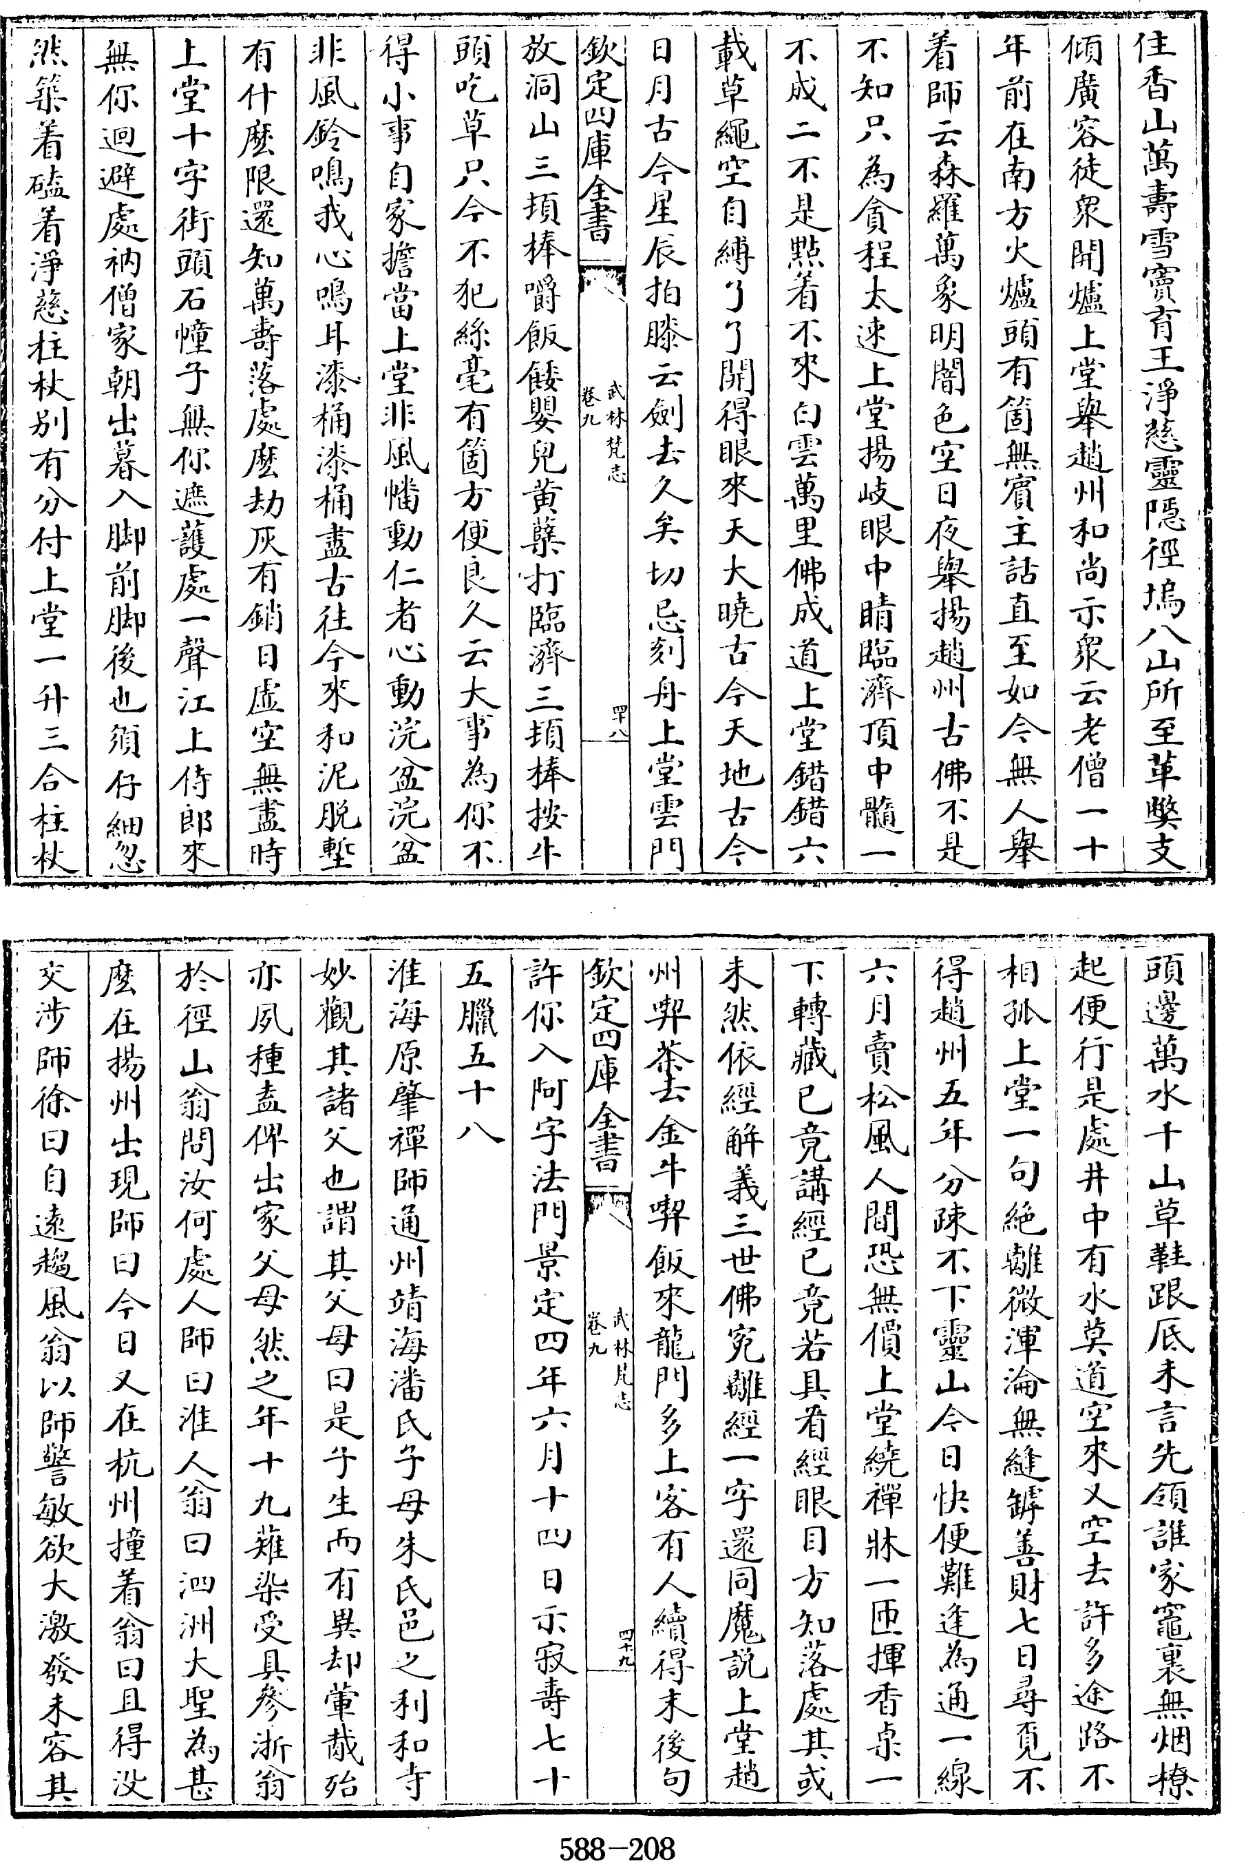 住香山萬壽雪竇育王淨慈靈隱徑塢八山所至革獘支
傾廣容徒衆開爐上堂舉趙州和尚示衆云老僧一十
年前在南方火爐頭有箇無賓主話直至如今無人舉
着師云森羅萬象明闇色空日夜舉揚趙州古佛不是
不知只為貪程太速上堂揚岐眼中睛臨濟頂中髓一
不成二不是點着不來白雲萬里佛成道上堂錯錯六
載草繩空自縛了了開得眼來天大曉古今天地古今
日月古今星辰拍膝云劍去久矣切忌刻舟上堂雲門
欽定四庫全書
武林梵志
卷九
四十八
放洞山三頓棒嚼飯餧嬰兒黄蘗打臨濟三頓棒按牛
頭吃草只今不犯絲毫有箇方便良久云大事為你不
得小事自家擔當上堂非風幡動仁者心動浣盆浣盆
非風鈴鳴我心鳴耳漆桶漆桶盡古往今來和泥脱墼
有什麽限還知萬壽落處麽劫灰有銷日虛空無盡時
上堂十字街頭石幢子無你遮護處一聲江上侍郎來
無你迴避處衲僧家朝出暮入脚前脚後也須仔細忽
然築着磕着淨慈柱杖别有分付上堂一升三合柱杖
頭邊萬水千山草鞋跟底未言先領誰家竈裏無烟撩
起便行是處井中有水莫道空來又空去許多途路不
相孤上堂一句絶離微渾淪無縫罅善財七日尋覔不
得趙州五年分疎不下靈山今日快便難逢為通一線
六月賣松風人間恐無價上堂繞禪牀一匝揮香桌一
下轉藏已竟講經已竟若具看經眼目方知落處其或
未然依經解義三世佛宛離經一字還同魔説上堂趙
州喫茶去金牛喫飯來龍門多上客有人續得末後句
欽定四庫全書
武林梵志
卷九
四十九
許你入阿字法門景定四年六月十四日示寂壽七十
五臘五十八
淮海原肇禪師通州靖海潘氏子母朱氏邑之利和寺
妙觀其諸父也謂其父母曰是子生而有異却葷胾殆
亦夙種盍俾出家父母然之年十九薙染受具參浙翁
於徑山翁問汝何處人師曰淮人翁曰泗洲大聖為甚
麽在揚州出現師曰今日又在杭州撞着翁曰且得没
交涉師徐曰自遠趨風翁以師警敏欲大激發未容其
588-208